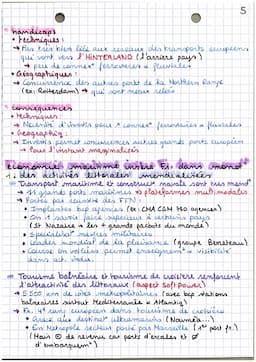 5
• handicaps
• Techniques :
→ Pas très bien liée aux réseaux des transports européens
qui vont vers l'HINTERLAND (l'arrière pays)
→ peu de connex° ferroviaires & fluviales
• Géographiques :
→ Concurrence des autres ports de la Northern Range
(ex: Rotterdam) → qui sont mieux reliés
• conséquences
• Techniques :
→ Nécessité d'investir pour connex° ferroviaires & fluviales
• Géographiq :
→ Investir permet concurrencer autres grands ports européens
→ Pour l'instant marginalisés
économie maritime insérée Fr dans mond°
1. des activités littorales mondialisées
= Transport maritime et construct° navale sont ds mond°
→ 11 grands ports maritimes → plateformes multimodales
→ Forte présence des FTN :
• Implantées bcp agences (ex: CMA CGM 750 agences)
• On a savoir faire supérieur à certains pays
(St Nazaire → les + grands paquebots du monde)
• Spécialité navires militaires
• Leader mondial de la plaisance (groupe Beneteau)
• Course en voiliers permet enseignem° → visibilité
dans ce
= Tourisme balnéaire et tourisme de croisière renforcent
l'attractivité des littoraux (aspect Soft Power)
→ 5 500 km de côtes métropolitaines (avec bcp stations
balnéaires surtout Méditerranée & Atlantiq)
→ Fr, 4e rang européen dans tourisme de croisière
• Grâce aux destina° ultramarines (Nouméa...)
• En Métropole surtout porté par Marseille (1er port fr.)
(Mais de revenus car ports d'escales et
d'embarquem°)